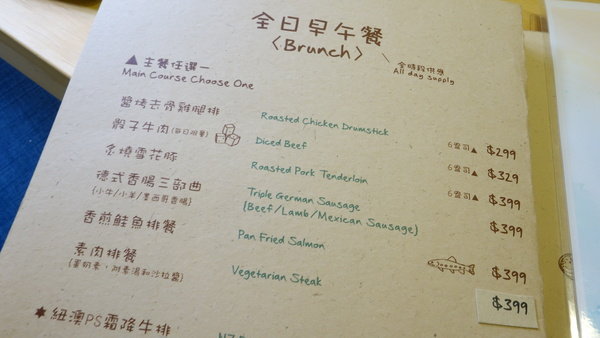 全日早午餐
〈Brunch〉
全時段供應
All day supply
▲主餐任選一
Main Course Choose One
醬烤去骨雞腿排 Roasted Chicken Drumstick 6盎司▲ $299
骰子牛肉(每日限量) Diced Beef 6盎司▲ $329
炙燒雪花豚 Roasted Pork Tenderloin 6盎司▲ $399
德式香腸三部曲 Triple German Sausage $399
(小牛/小羊/墨西哥香腸) (Beef/Lamb/Mexican Sausage)
香煎鮭魚排餐 Pan Fried Salmon $399
素肉排餐 Vegetarian Steak $399
(蛋奶素,附素湯和沙拉醬)
★紐澳PS霜降牛排